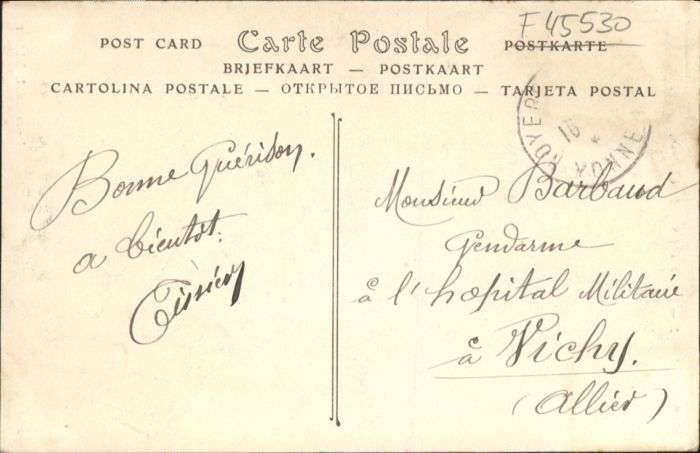 F 45530
POST CARD Carte Postale POSTKARTE
BRJEFKAART — POSTKAART
CARTOLINA POSTALE — ОТКРЫТОЕ ПИСЬМО — TARJETA POSTAL
NOYER
YONNE
Bonne Guérison.
a bientôt.
Monsieur Barbaud
Gendarme
à l'hopital Militaire
à Vichy.
(Allier)